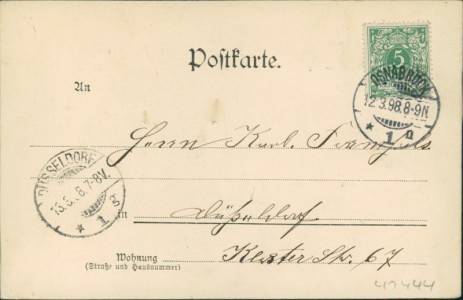 Postkarte.
5
OSNABRÜCK
12.3.98.8-9N.
* 1 a
An
Herrn Karl
DÜSSELDORF
7-8V.
* 1
in Düsseldorf
Wohnung
(Straße und Hausnummer)
Str. 67
47444